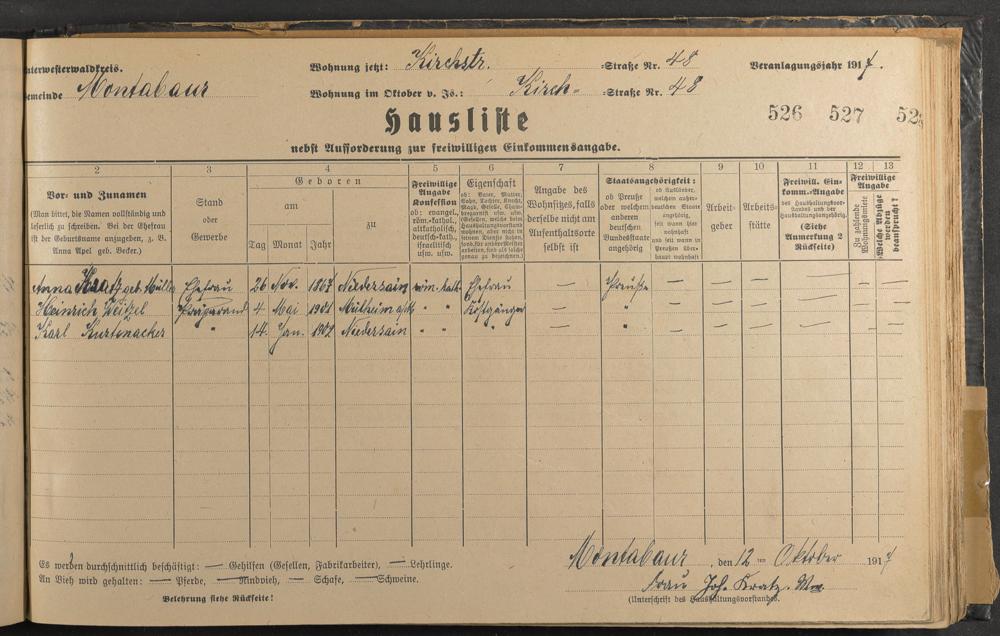 Unterwesterwaldkreis. Wohnung jetzt: Kirchstr. -Straße Nr. 48 Veranlagungsjahr 1917.
Gemeinde Montabaur Wohnung im Oktober v. Js.: Kirch- -Straße Nr. 48
526 527 52
Hausliste
nebst Aufforderung zur freiwilligen Einkommensangabe.
2 3 4 5 6 7 8 9 10 11 12 13
Vor- und Zunamen
(Man bittet, die Namen vollständig und
leserlich zu schreiben. Bei der Ehefrau
ist der Geburtsname anzugeben, z. B.
Anna Apel geb. Becker.)
Stand
oder
Gewerbe
Geboren
am zu
Tag Monat Jahr
Freiwillige
Angabe
Konfession
ob: evangel.,
röm.-kathol.,
altkatholisch,
deutsch-kath.,
israelitisch
usw. usw.
Eigenschaft
Angabe des
Wohnsitzes, falls
derselbe nicht am
Aufenthaltsorte
selbst ist
Staatsangehörigkeit:
ob Preuße
oder welchem
anderen
deutschen
Bundesstaate
angehörig
ob Ausländer,
welchem außer-
deutschen Staate
angehörig,
seit wann hier
wohnhaft
und seit wann in
Preußen über-
haupt wohnhaft
Arbeit-
geber
Arbeits-
stätte
Freiwill. Ein-
komm.-Angabe
des Haushaltungsvor-
standes und der
Haushaltungsangehörig.
(Siehe
Anmerkung 2
Rückseite)
Freiwillige
Angabe
Zu zahlende
Wohnungsmiete
Welche Abzüge
werden
beansprucht?
Anna Kratz geb. Müller Ehefrau 26 Nov. 1867 Niedersain röm. kath. Ehefrau — Preuße — — — — — —
Heinrich Weitzel Präparand 4 Mai 1901 " " Kostgänger — " — — — — — —
Karl " 14. Jan. 1901 Niedersain " " " — " — — — — — —
Es werden durchschnittlich beschäftigt: — Gehilfen (Gesellen, Fabrikarbeiter), — Lehrlinge.
An Vieh wird gehalten: — Pferde, — Rindvieh, — Schafe, — Schweine.
Belehrung siehe Rückseite!
Montabaur, den 12 ten Oktober 1917
Frau Joh. Kratz. Ww.
(Unterschrift des Haushaltungsvorstandes.